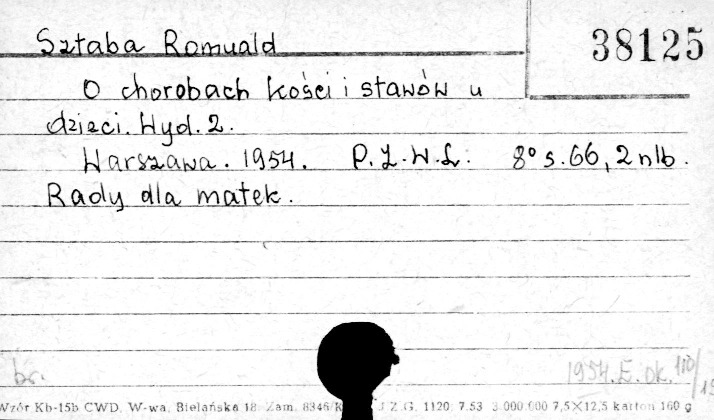 38125
Sztaba Romuald
O chorobach kości i stawów u
dzieci. Wyd. 2.
Warszawa. 1954. P.Z.W.L. 8° s. 66, 2 nlb.
Rady dla matek.
br.
1954. E. ok. 110/
Wzór Kb-15b CWD, W-wa, Bielańska 18 Zam. 8346/ J.Z.G. 1120 7.53 3.000.000 7,5×12,5 karton 160 g